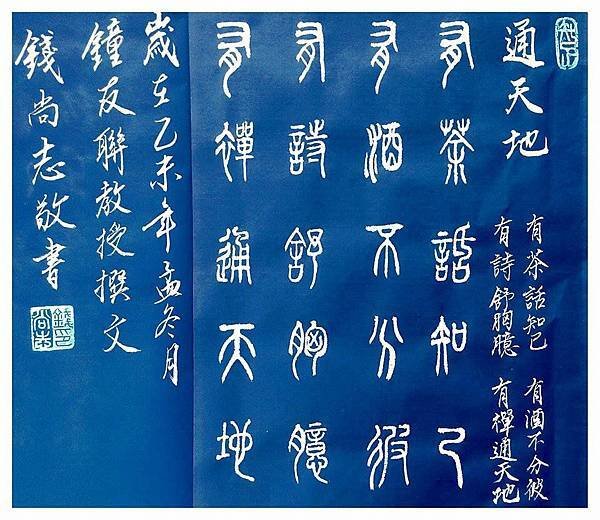 通天地
有茶話知己 有酒不分彼
有詩舒胸臆 有禪通天地
有茶話知己
有酒不分彼
有詩舒胸臆
有禪通天地
歲在乙未年孟冬月
鐘友聯教授撰文
錢尚志敬書